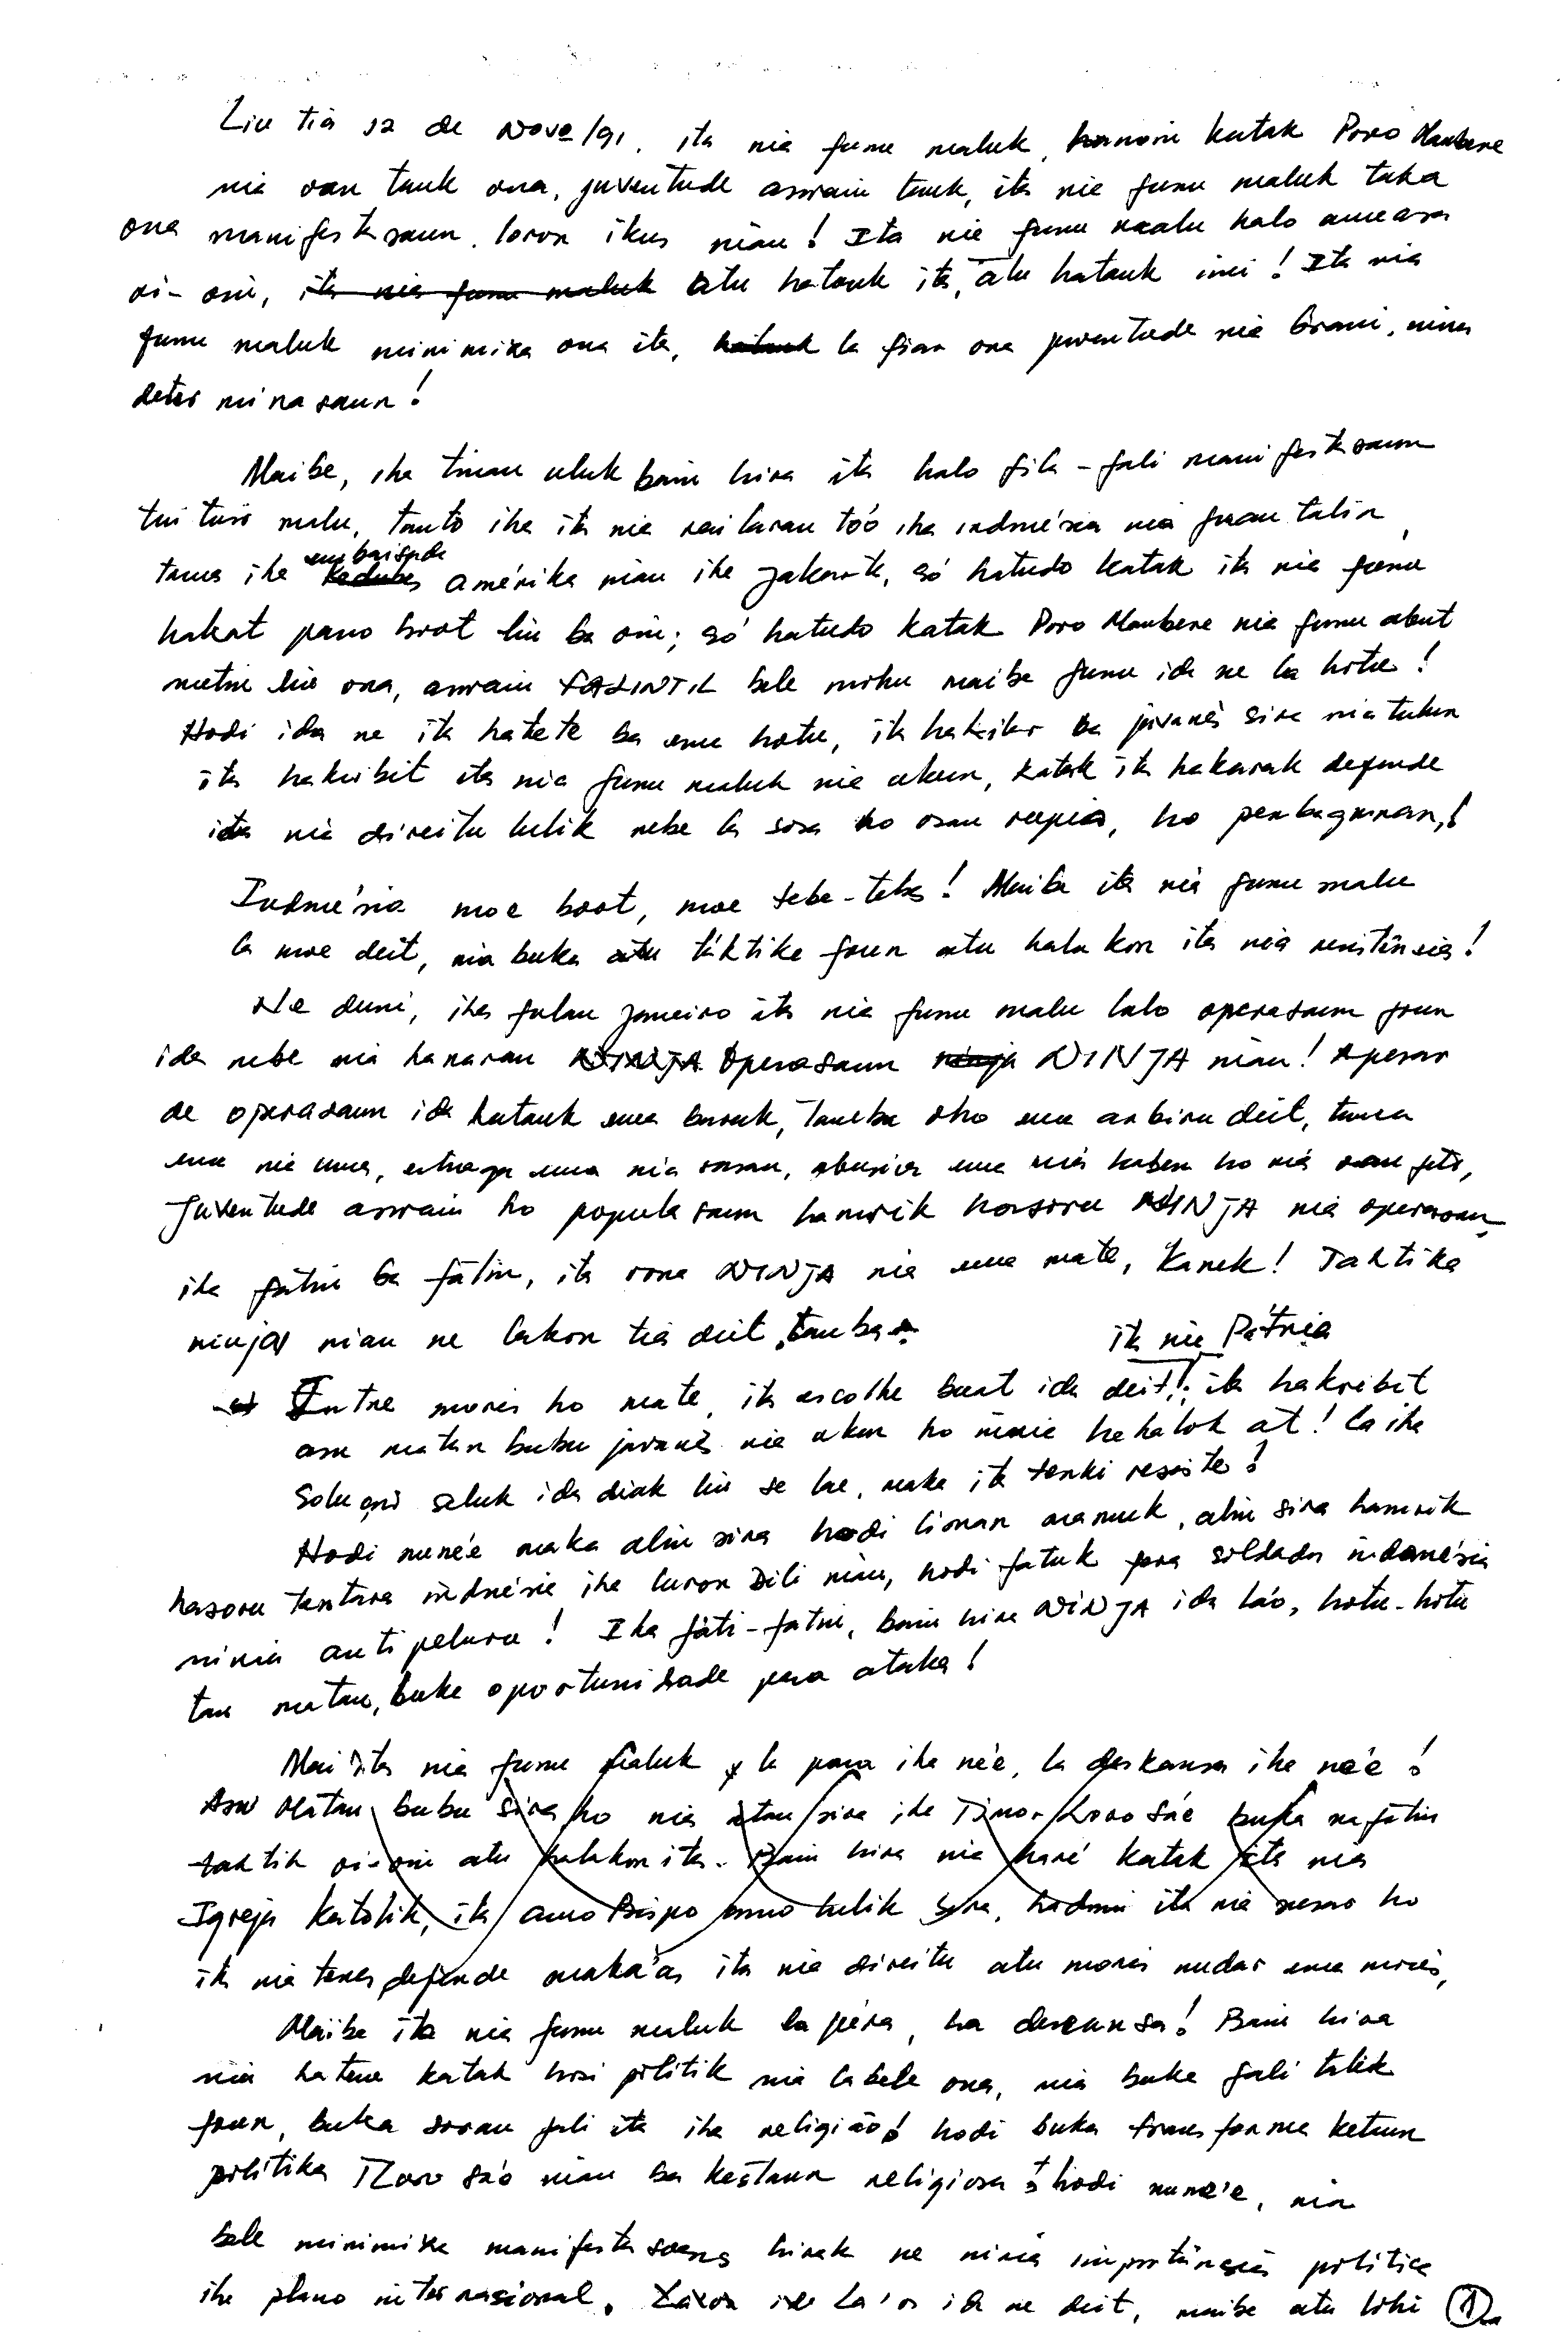 Liu tia 12 de Novo/91, ita nia funu maluk, hanoin katak Povo Maubere
nia oan tauk ona, juventude aswain tauk, ita nia funu maluk taka
ona manifestasaun loron ikus nian! Ita nia funu maalu halo ameasa
oi-oin, ita nia funu maluk atu hatauk ita, atu hatauk imi! Ita nia
funu maluk minimiza ona ita, hatauk la fiar ona juventude nia brani, ninia
determinasaun!
Maibe, iha tinan uluk bain hira ita halo fila-fali manifestasaun
tuituir malu, tanto iha ita nia rai laran to'o iha indonésia nia fuan talin,
tama iha embaixada Kedubes amérika nian iha Jakarta, só hatudo katak ita nia funu
hakat passo boot liu ba oin; só hatudo katak Povo Maubere nia funu abut
metin liu ona, aswain FALINTIL bele mohu maibe funu ida ne la hotu!
Hodi ida ne ita hatete ba ema hotu, ita hakilar ba javanês sira nia tilun
ita hakribit ita nia funu maluk nia ukun, katak ita hakarak defende
ita nia direitu lulik nebe la sosa ho osan rupia, ho pembagunan!
Indonésia moe boot, moe tebe-tebes! Maibe ita nia funu malu
la moe deit, nia buka atu táktika foun atu halakon ita nia resistênsia!
Ne duni, iha fulan Janeiro ita nia funu malu halo operasaun foun
ida nebe nia hanaran NINJA Operasaun ninja NINJA nian! Apesar
de operasaun ida hatauk ema barak, tanba oho ema arbiru deit, tama
ema nia uma, estraga ema nia sasan, abusa ema nia kaben ho nia oan feto,
Juventude aswain ho populasaun hamrik hasoru NINJA nia operasaun,
iha fatin ba fatin, ita rona NINJA nia ema mate, kanek! Taktika
ninjas nian ne lakon tia deit, tanba:
ita nia Pátria
Entre moris ho mate, ita escolhe buat ida deit!: ita hakribit
asu matan bubu javanês nia ukun ho ninia hahalok at! la iha
solução seluk ida diak liu se lae, maka ita tenki resiste!
Hodi nune'e maka alin sira hodi liman mamuk, alin sira hamrik
hasoru tentara indonésia iha luron Dili nian, hodi fatuk fera soldadu indonésia
ninia anti peluru! Iha fati-fatin, bain hira NINJA ida la'o, hotu-hotu
tau matan, buka oportunidade para ataka!
Mai ita nia funu maluk la para iha ne'e, la deskansa iha ne'e!
Asu Matan bubu sira ho nia atan sira iha Timor Loro Sa'e buka nafatin
taktik oi-oin atu halakon ita. Bain hira nia haré katak ita nia
Igreja Katolik, ita amo Bispo amo lulik sira, hadomi ita nia povo ho
ita nia tenes defende maka'as ita nia direitu atu moris nudar ema moris,
Maibe ita nia funu maluk la pára, la descansa! Bain hira
nia hatene katak hosi politik nia labele ona, nia buka fali taktik
foun, buka soran fali ita iha religião! hodi buka transforma kestaun
politika T Loro Sa'e nian ba kestaun religiosa! hodi nune'e, nia
bele minimiza manifestasoens hirak ne ninia importânsia politica
iha plano internasional. la'os ida ne deit, maibe atu lohi 1